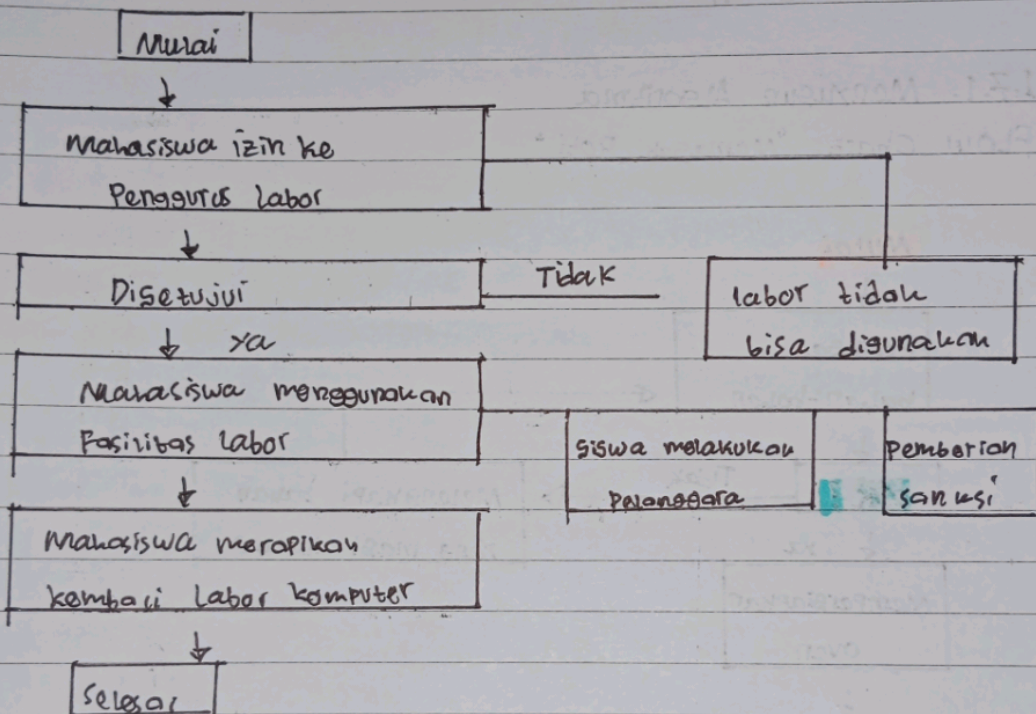 Mulai
Mahasiswa izin ke
Penggurus labor
Disetujui
Tidak
labor tidak
bisa digunakan
ya
Mahasiswa menggunakan
Fasilitas labor
Siswa melakukan
Pelanggara
Pemberian
sanksi
Mahasiswa merapikan
kembali labor komputer
Selesai